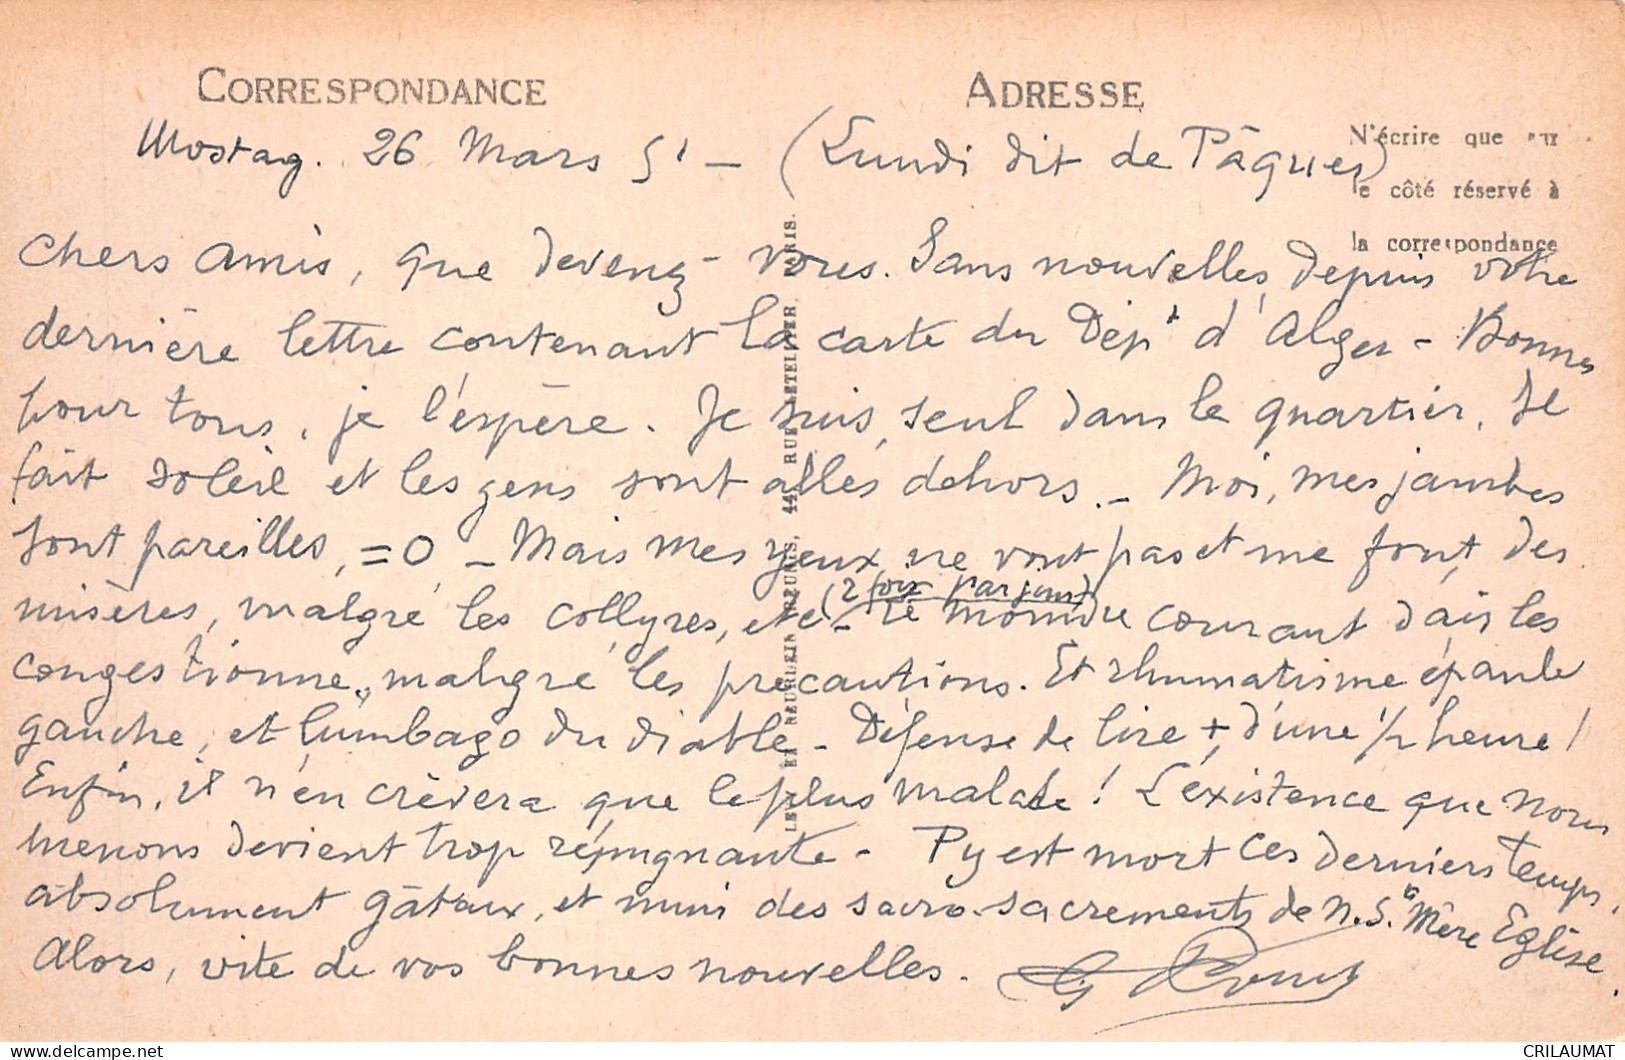 CORRESPONDANCE
ADRESSE
N'écrire que sur
le côté réservé à
la correspondance
Mostag. 26 Mars 51 – (Lundi dit de Pâques)
Chers Amis, que devenez-vous. Sans nouvelles depuis votre
dernière lettre contenant la carte du Dépt d'Alger – Bonnes
pour tous, je l'espère. Je suis seul dans le quartier. Il
fait soleil et les gens sont allés dehors. – Moi, mes jambes
sont pareilles, = 0 – Mais mes yeux ne vont pas et me font des
misères, malgré les collyres, etc (2 fois par jour) – le moindre courant d'air les
congestionne, malgré les précautions. Et rhumatisme épaule
gauche, et lumbago du diable – Défense de lire + d'une 1/2 heure !
Enfin, il n'en crèvera que le plus malade ! L'existence que nous
menons devient trop répugnante – Py est mort ces derniers temps,
absolument gâteux, et muni des sacro-sacrements de N. Ste Mère Eglise.
Alors, vite de vos bonnes nouvelles.
NEURDEIN RÉUNIS, 44, RUE LETELLIER, PARIS.
CRILAUMAT